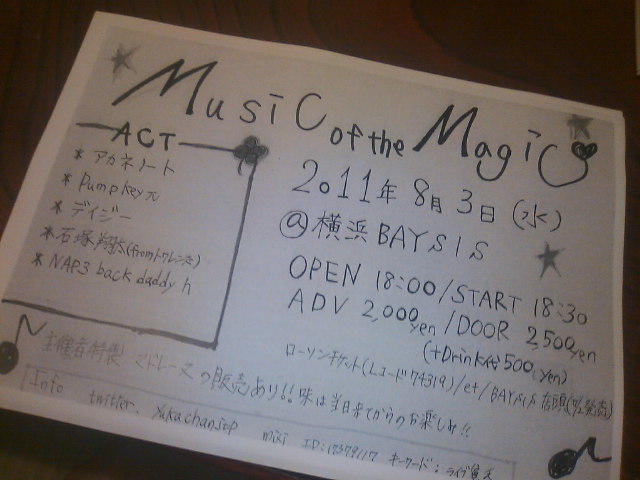 Music of the Magic
ACT
* アカネノート
* Pumpkey元
* デイジー
* 石塚翔太(from トワレンス)
* NAP3 back daddy h
2011年 8月 3日 (水)
@横浜 BAYSIS
OPEN 18:00/START 18:30
ADV 2,000yen/DOOR 2,500yen
(+Drink代500yen)
ローソンチケット(Lコード74319)/et/BAYSIS店頭
主催者特製 マドレーヌの販売あり!! 味は当日来てからのお楽しみ!!
Info twitter. yukachanstop mixi ID:17379117 キーワード: